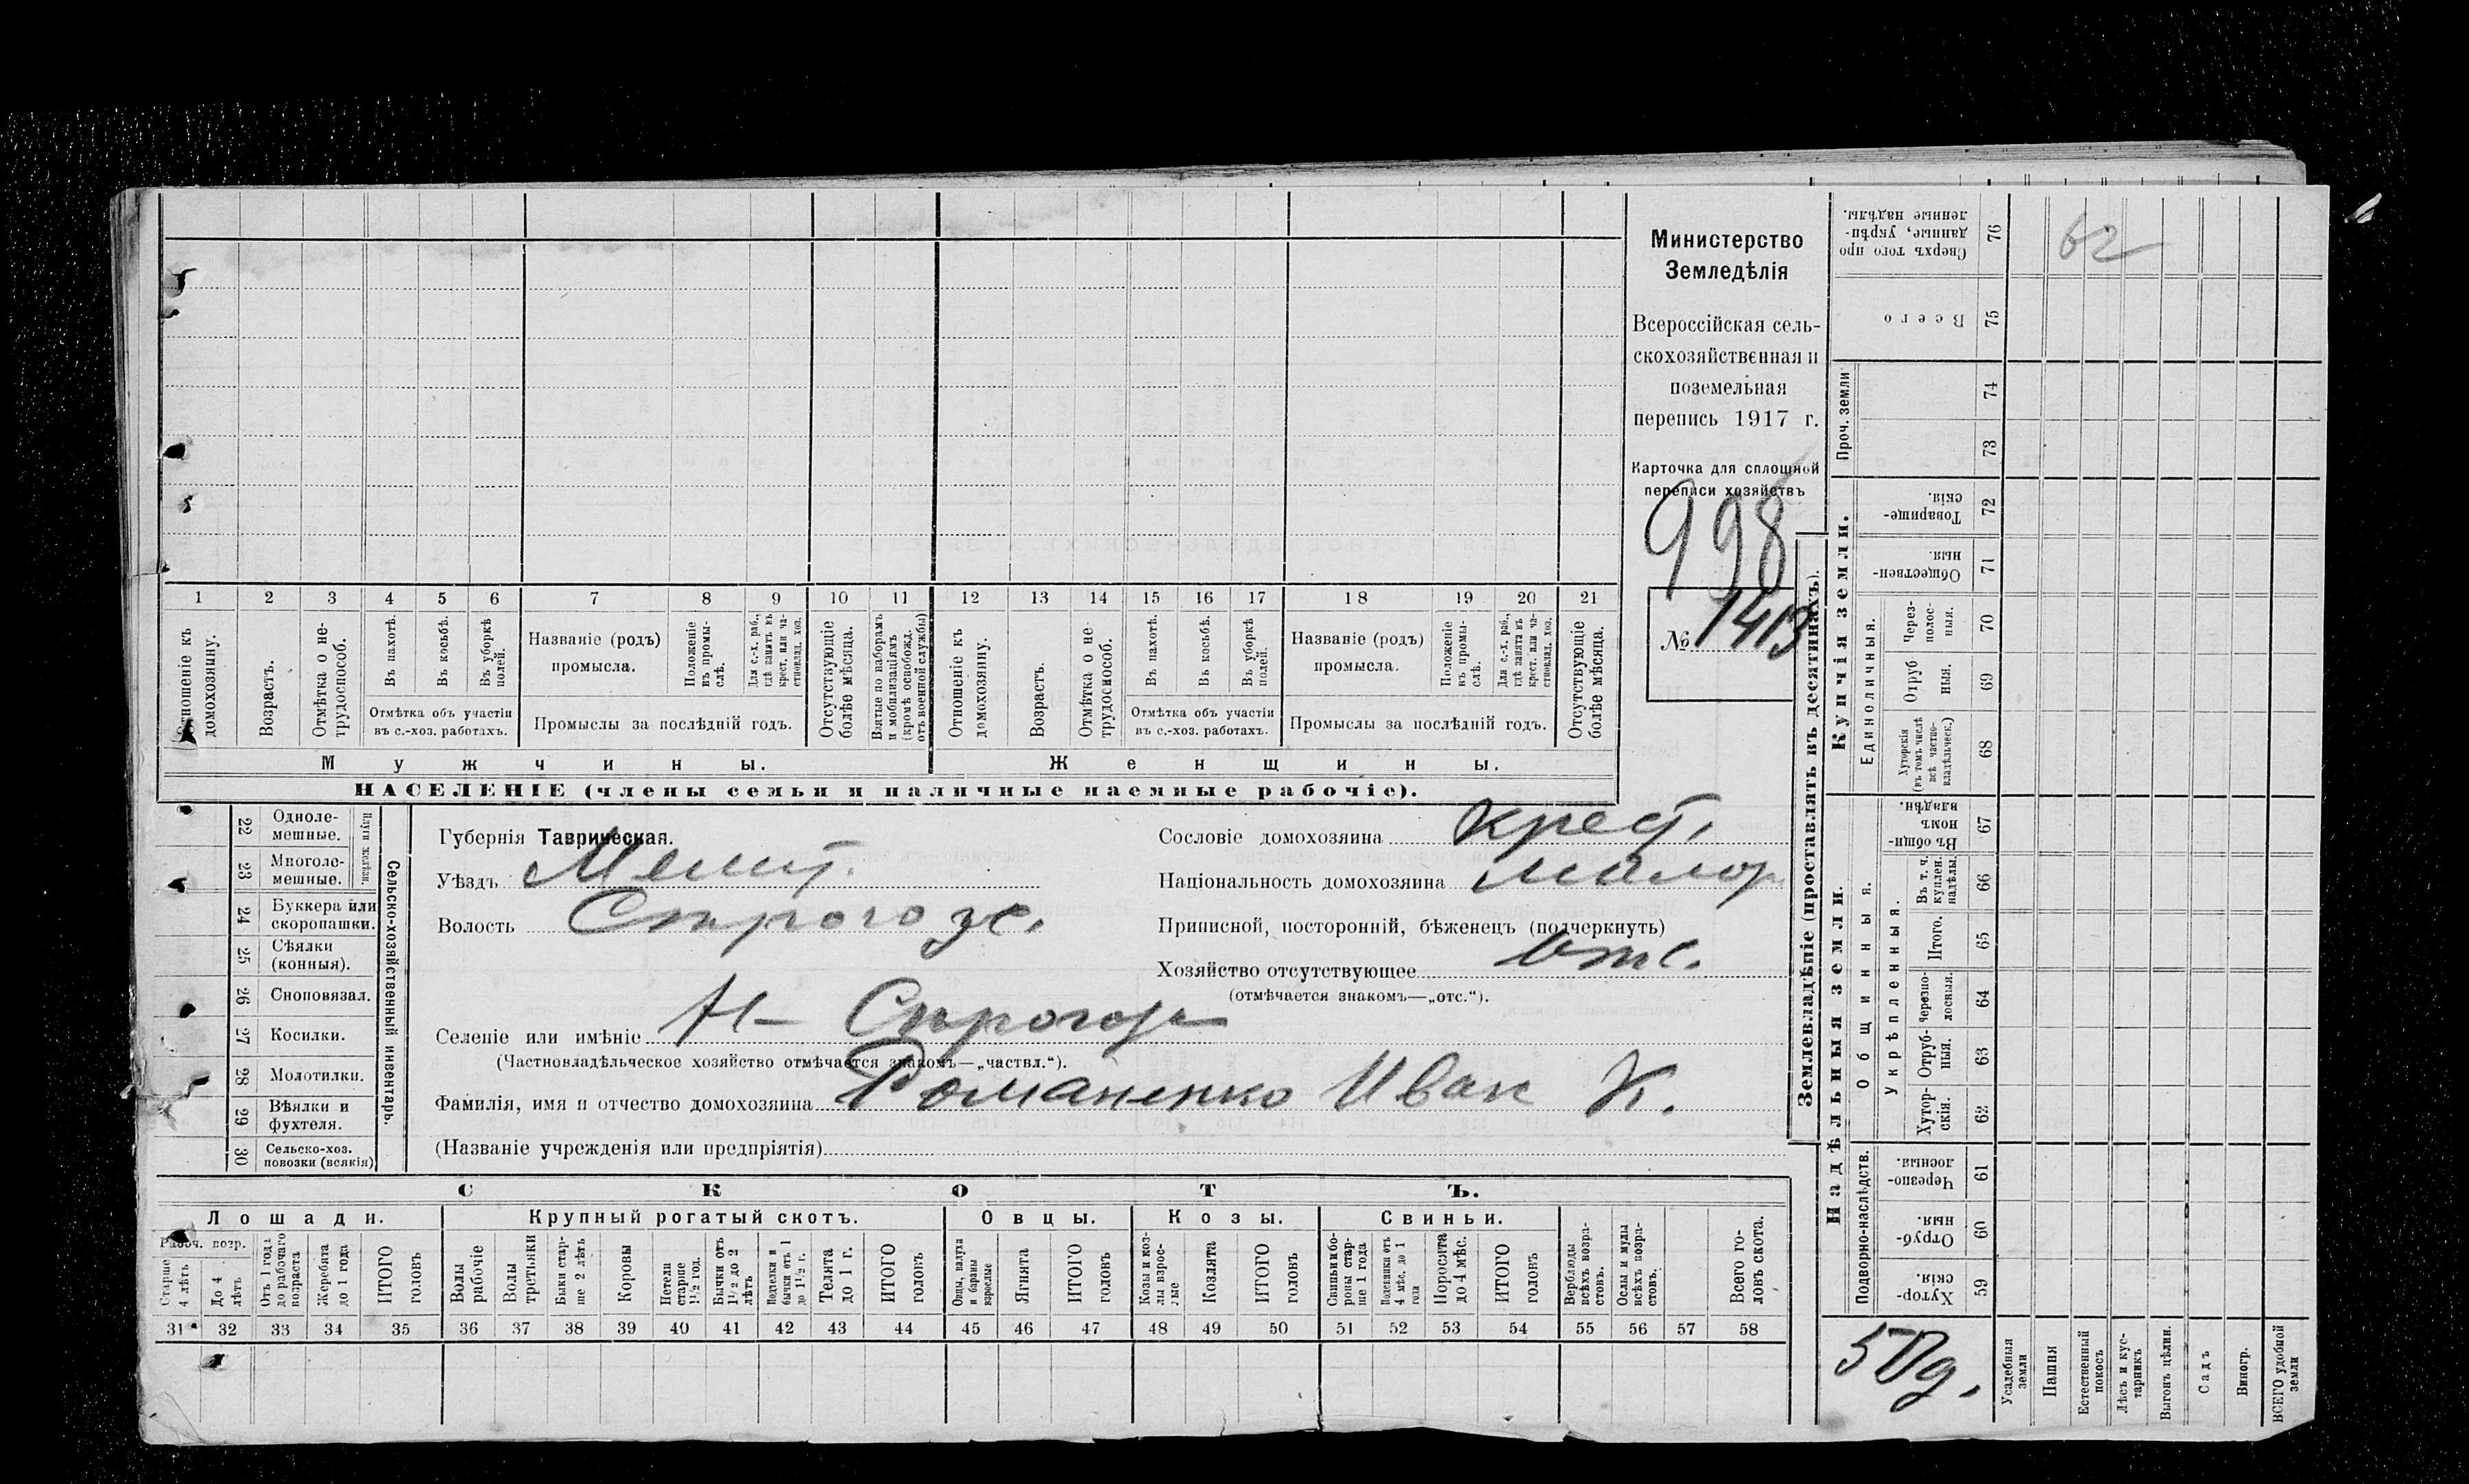 1 2 3 4 5 6 7 8 9 10 11 12 13 14 15 16 17 18 19 20 21
Отношеніе къ домохозяину.
Возрастъ.
Отмѣтка о не-
трудоспособ.
Въ пахотѣ.
Въ косьбѣ.
Въ уборкѣ
полей.
Отмѣтка объ участіи
въ с.-хоз. работахъ.
Названіе (родъ)
промысла.
Положеніе
въ промы-
слѣ.
Для с.-х. раб.,
гдѣ занятъ въ
крест. или ча-
стновлад. хоз.
Промыслы за послѣдній годъ.
Отсутствующіе
болѣе мѣсяца.
Взятые по наборамъ
и мобилизаціямъ
(кромѣ освобожд.
отъ военной службы)
Отношеніе къ
домохозяину.
Возрастъ.
Отмѣтка о не-
трудоспособ.
Въ пахотѣ.
Въ косьбѣ.
Въ уборкѣ
полей.
Отмѣтка объ участіи
въ с.-хоз. работахъ.
Названіе (родъ)
промысла.
Положеніе
въ промы-
слѣ.
Для с.-х. раб.,
гдѣ занята въ
крест. или ча-
стновлад. хоз.
Промыслы за послѣдній годъ.
Отсутствующіе
болѣе мѣсяца.
Мужчины.
Женщины.
НАСЕЛЕНІЕ (члены семьи и наличные наемные рабочіе).
Министерство
Земледѣлія
Всероссійская сель-
скохозяйственная и
поземельная
перепись 1917 г.
Карточка для сплошной
переписи хозяйствъ
998
№ 1413
22 Одноле-
мешные.
23 Многоле-
мешные.
Плуги желѣзн.
24 Буккера или
скоропашки.
25 Сѣялки
(конныя).
26 Сноповязал.
27 Косилки.
28 Молотилки.
29 Вѣялки и
фухтеля.
30 Сельско-хоз.
повозки (всякія)
Сельско-хозяйственный инвентарь.
Губернія Таврическая.
Уѣздъ Мелит.
Волость Строгозс.
Сословіе домохозяина крест.
Національность домохозяина малор
Приписной, посторонній, бѣженецъ (подчеркнуть)
Хозяйство отсутствующее отс.
(отмѣчается знакомъ—„отс.“).
Селеніе или имѣніе Н- Строгозы
(Частновладѣльческое хозяйство отмѣчается знакомъ—„частвл.“).
Фамилія, имя и отчество домохозяина Романенко Иван К.
(Названіе учрежденія или предпріятія)
СКОТЪ.
Лошади.
Крупный рогатый скотъ.
Овцы.
Козы.
Свиньи.
Рабоч. возр.
Старше
4 лѣтъ
До 4
лѣтъ
Отъ 1 года
до рабочаго
возраста
Жеребята
до 1 года
ИТОГО
головъ
Волы
рабочіе
Волы
третьяки
Быки стар-
ше 2 лѣтъ
Коровы
Нетели
старше
1½ год.
Бычки отъ
1½ до 2
лѣтъ
Подтелки и
бычки отъ 1
до 1½ г.
Телята
до 1 г.
ИТОГО
головъ
Овцы, валухи
и бараны
взрослые
Ягнята
ИТОГО
головъ
Козы и коз-
лы взрос-
лые
Козлята
ИТОГО
головъ
Свиньи и бо-
ровы стар-
ше 1 года
Подсвинки отъ
4 мѣс. до 1
года
Поросята
до 4 мѣс.
ИТОГО
головъ
Верблюды
всѣхъ возра-
стовъ.
Ослы и мулы
всѣхъ возра-
стовъ.
Всего го-
ловъ скота.
31 32 33 34 35 36 37 38 39 40 41 42 43 44 45 46 47 48 49 50 51 52 53 54 55 56 57 58
Землевладѣніе (проставлять въ десятинахъ).
Сверхъ того про
данные, укрѣп-
ленные надѣлы.
76
62
Всего
75
Проч. земли
74
73
Купчія земли.
Товарище-
скія.
72
Обществен-
ныя.
71
Единоличныя.
Через-
полос-
ныя.
70
Отруб
ныя.
69
Хуторскія
(въ томъ числѣ
всѣ частно-
владѣльческ.)
68
Надѣльныя земли.
Общинныя.
Въ общи
номъ
владѣн.
67
Укрѣпленныя.
Въ т. ч.
куплен.
надѣлы.
66
Итого.
65
Черезпо-
лосныя.
64
Отруб-
ныя.
63
Хутор-
скія.
62
Подворно-наслѣдств.
Черезпо-
лосныя.
61
Отруб-
ныя.
60
Хутор-
скія.
59
Усадебныя
земли
Пашня
Естественный
покосъ
Лѣсъ и кус-
тарникъ
Выгонъ цѣлин.
Садъ
Виногр.
ВСЕГО удобной
земли